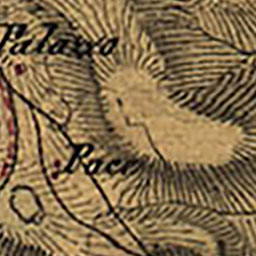 Palazzo
Poce